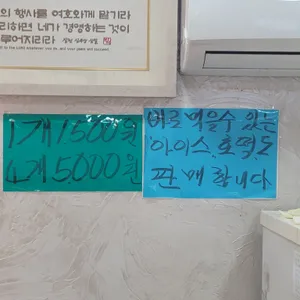 의 행사를 여호와께 맡기라
리하면 네가 경영하는 것이
루어지리라
1개 1500원
4개 5,000원
바로 먹을수 있는
아이스, 호떡도
판매 합니다